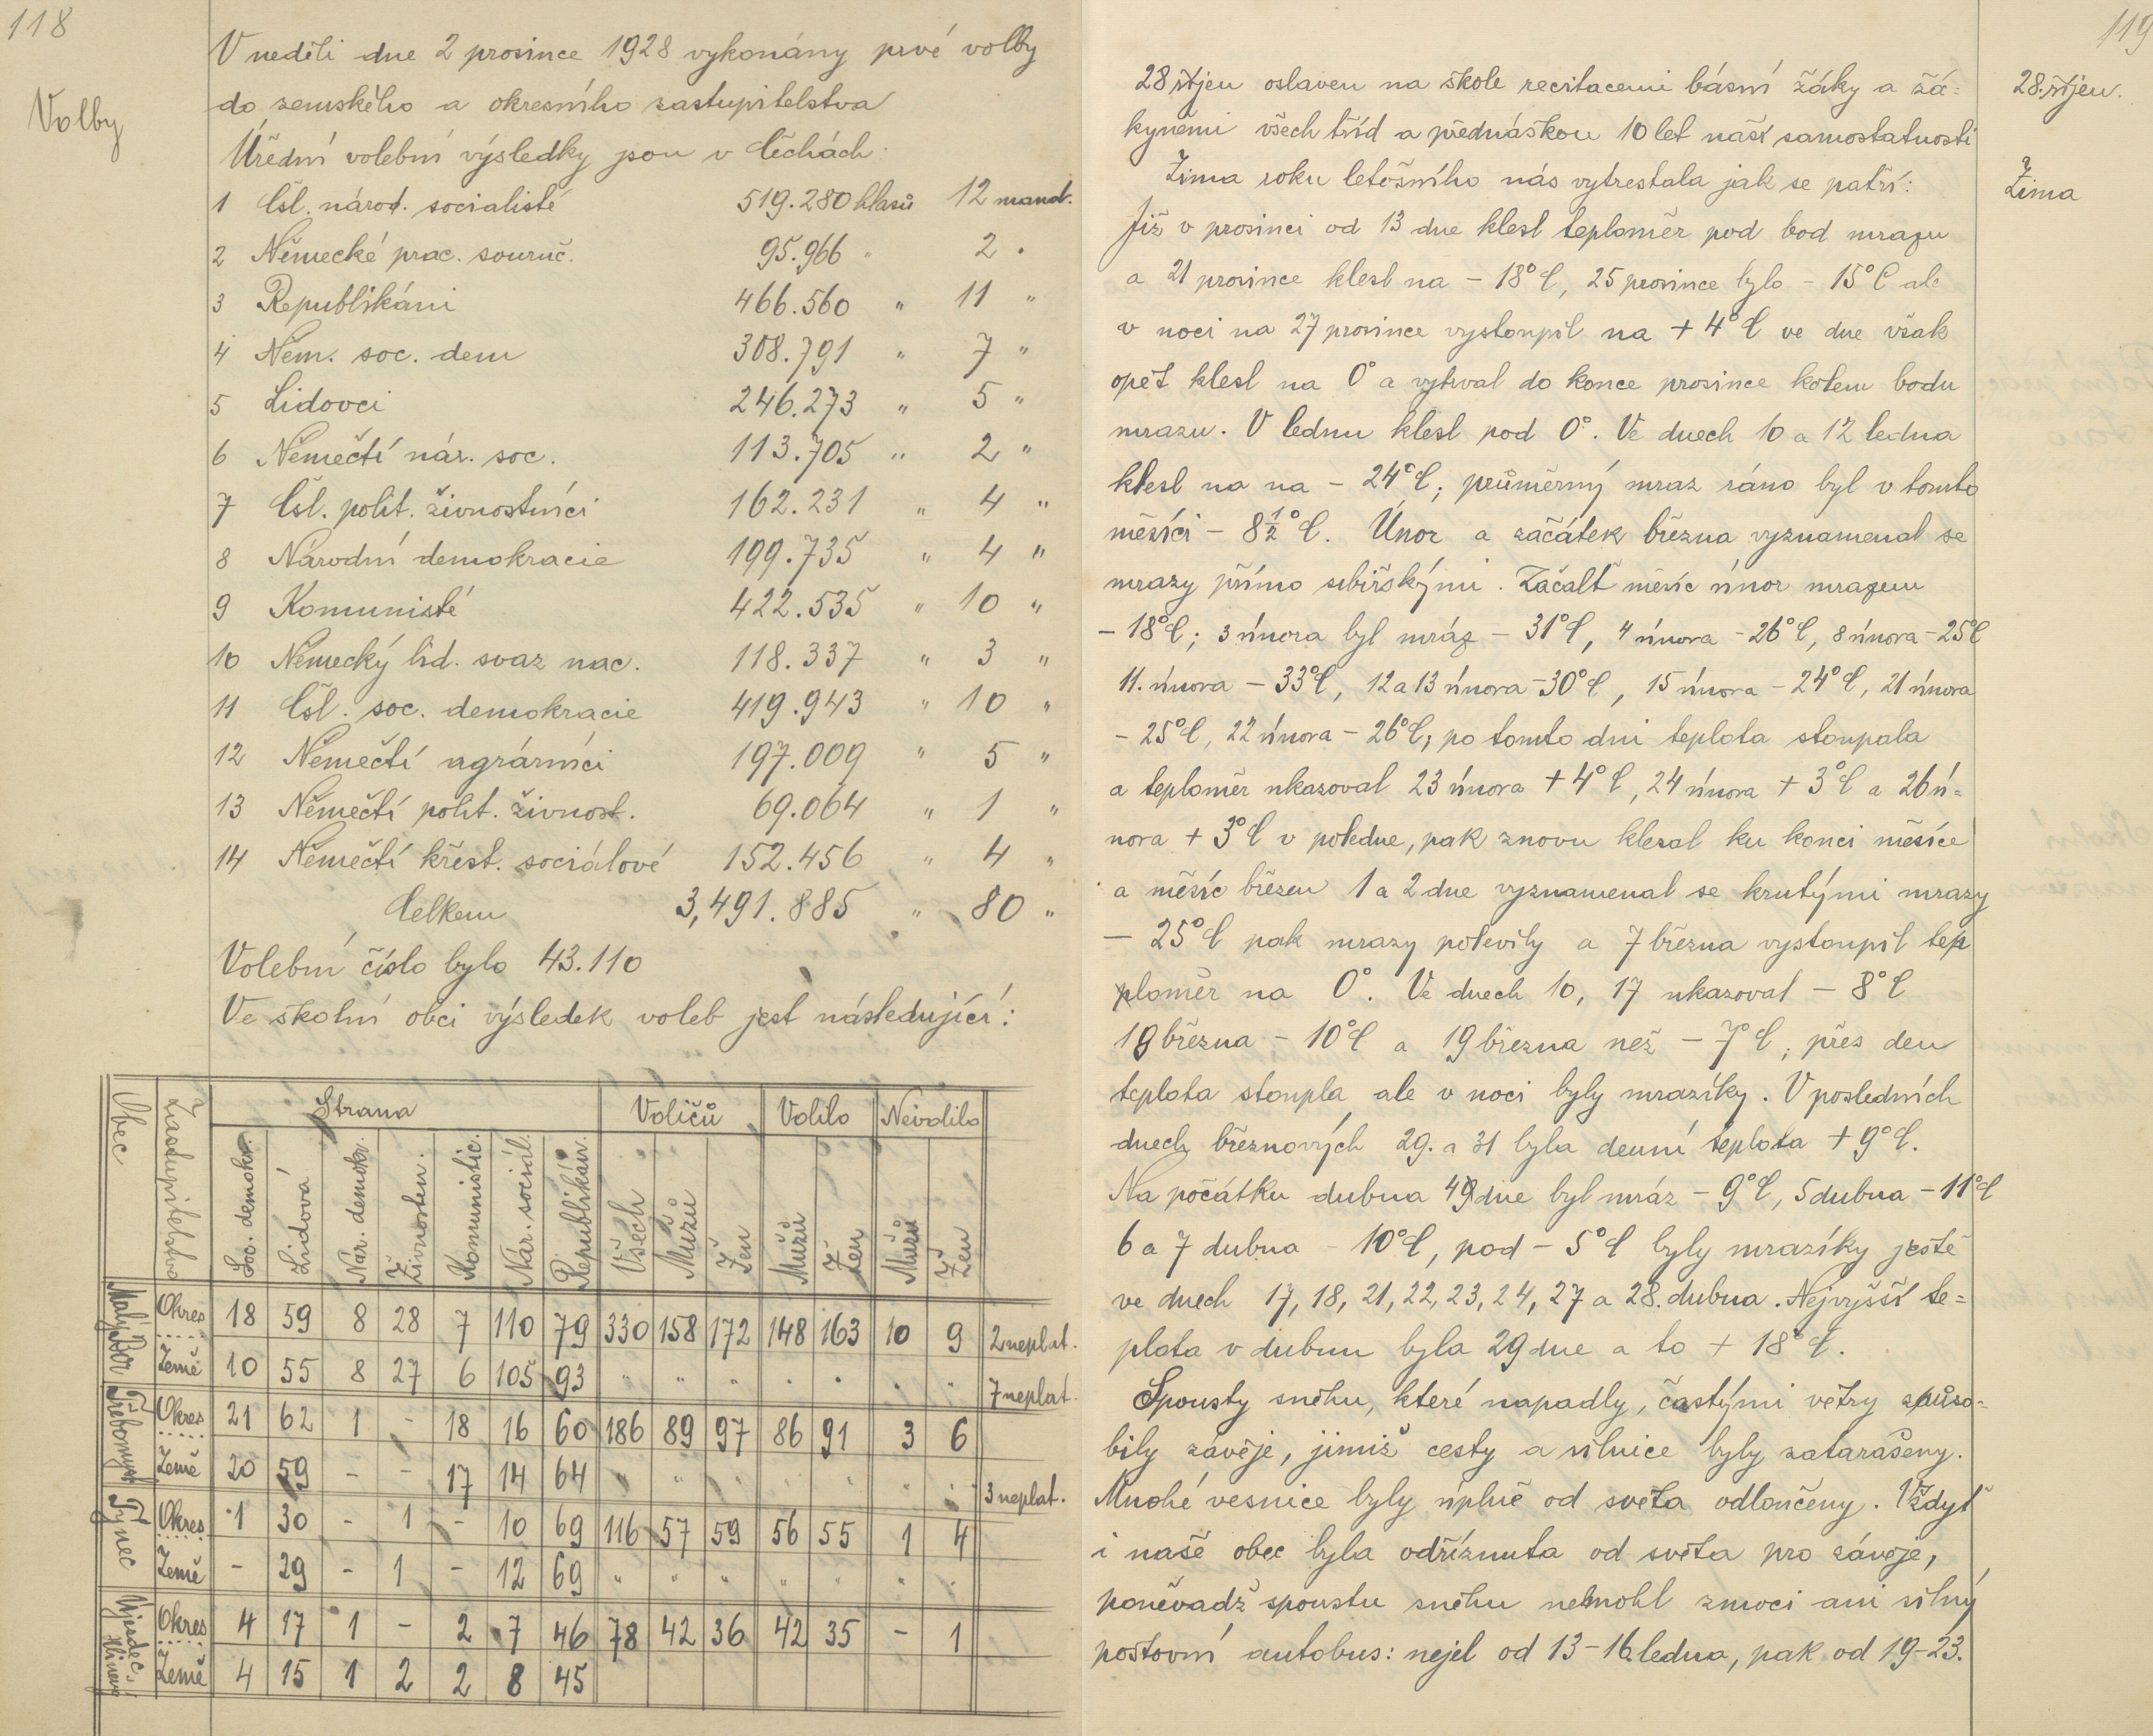 118
Volby
V neděli dne 2 prosince 1928 vykonány prvé volby
do zemského a okresního zastupitelstva
Úřední volební výsledky jsou v Čechách:
1 Čsl. národ. socialisté 519.280 hlasů 12 mand.
2 Německé prac. souruč. 95.966 " 2 "
3 Republikáni 466.560 " 11 "
4 Něm. soc. dem 308.791 " 7 "
5 Lidovci 246.273 " 5 "
6 Němečtí nár. soc. 113.705 " 2 "
7 Čsl. polit. živnostníci 162.231 " 4 "
8 Národní demokracie 199.735 " 4 "
9 Komunisté 422.535 " 10 "
10 Německý lid. svaz nac. 118.337 " 3 "
11 Čsl. soc. demokracie 419.943 " 10 "
12 Němečtí agrárníci 197.009 " 5 "
13 Němečtí polit. živnost. 69.064 " 1 "
14 Němečtí křest. sociálové 152.456 " 4 "
Celkem 3,491.885 " 80 "
Volební číslo bylo 43.110
Ve školní obci výsledek voleb jest následující:
Obec Zastupitelstvo Strana Voličů Volilo Nevolilo
Soc. demokr. Lidová Nár. demokr. Živnosten. Komunistic. Nár. sociál. Republikán. Všech Mužů Žen Mužů Žen Mužů Žen
Malý Bor Okres 18 59 8 28 7 110 79 330 158 172 148 163 10 9 2 neplat.
Země 10 55 8 27 6 105 93 " " " " " " " 7 neplat.
Třebomysl Okres 21 62 1 - 18 16 60 186 89 97 86 91 3 6
Země 20 59 - - 17 14 64 " " " " " " " 3 neplat.
Týnec Okres 1 30 - 1 - 10 69 116 57 59 56 55 1 4
Země - 29 - 1 - 12 69 " " " " " " "
Okres 4 17 1 - 2 7 46 78 42 36 42 35 - 1
Země 4 15 1 2 2 8 45
119
28. říjen.
28 říjen oslaven na škole recitacemi básní žáky a žá=
kyněmi všech tříd a přednáškou 10 let naší samostatnosti
Zima
Zima roku letošního nás vytrestala jak se patří:
Již v prosinci od 13 dne klesl teploměr pod bod mrazu
a 21 prosince klesl na - 18°C, 25 prosince bylo - 15°C ale
v noci na 27 prosince vystoupil na + 4°C ve dne však
opět klesl na 0° a vytrval do konce prosince kolem bodu
mrazu. V lednu klesl pod 0°. Ve dnech 10 a 12 ledna
klesl na na - 24°C; průměrný mraz ráno byl v tomto
měsíci - 8½°C. Únor a začátek března vyznamenal se
mrazy přímo sibiřskými. Začalť měsíc únor mrazem
- 18°C; 3 února byl mráz - 31°C, 4 února - 26°C, 8 února - 25°C
11. února - 33°C, 12 a 13 února - 30°C, 15 února - 24°C, 21 února
- 25°C, 22 února - 26°C; po tomto dni teplota stoupala
a teploměr ukazoval 23 února + 4°C, 24 února + 3°C a 26 ú=
nora + 3°C v poledne, pak znovu klesal ku konci měsíce
a měsíc březen 1 a 2 dne vyznamenal se krutými mrazy
- 25°C pak mrazy polevily a 7 března vystoupil tep
loměr na 0°. Ve dnech 10, 17 ukazoval - 8°C
18 března - 10°C a 19 března než - 7°C; přes den
teplota stoupla ale v noci byly mrazíky. V posledních
dnech březnových 29. a 31 byla denní teplota + 9°C.
Na počátku dubna 4 dne byl mráz - 9°C, 5 dubna - 11°C
6 a 7 dubna - 10°C, pod - 5°C byly mrazíky ještě
ve dnech 17, 18, 21, 22, 23, 24, 27 a 28. dubna. Nejvyšší te=
plota v dubnu byla 29 dne a to + 18°C.
Spousty sněhu, které napadly, častými větry způso=
bily závěje, jimiž cesty a silnice byly zatarašeny.
Mnohé vesnice byly úplně od světa odloučeny. Vždyť
i naše obec byla odříznuta od světa pro závěje,
poněvadž spoustu sněhu nemohl zmoci ani silný
poštovní autobus: nejel od 13-16 ledna, pak od 19-23.